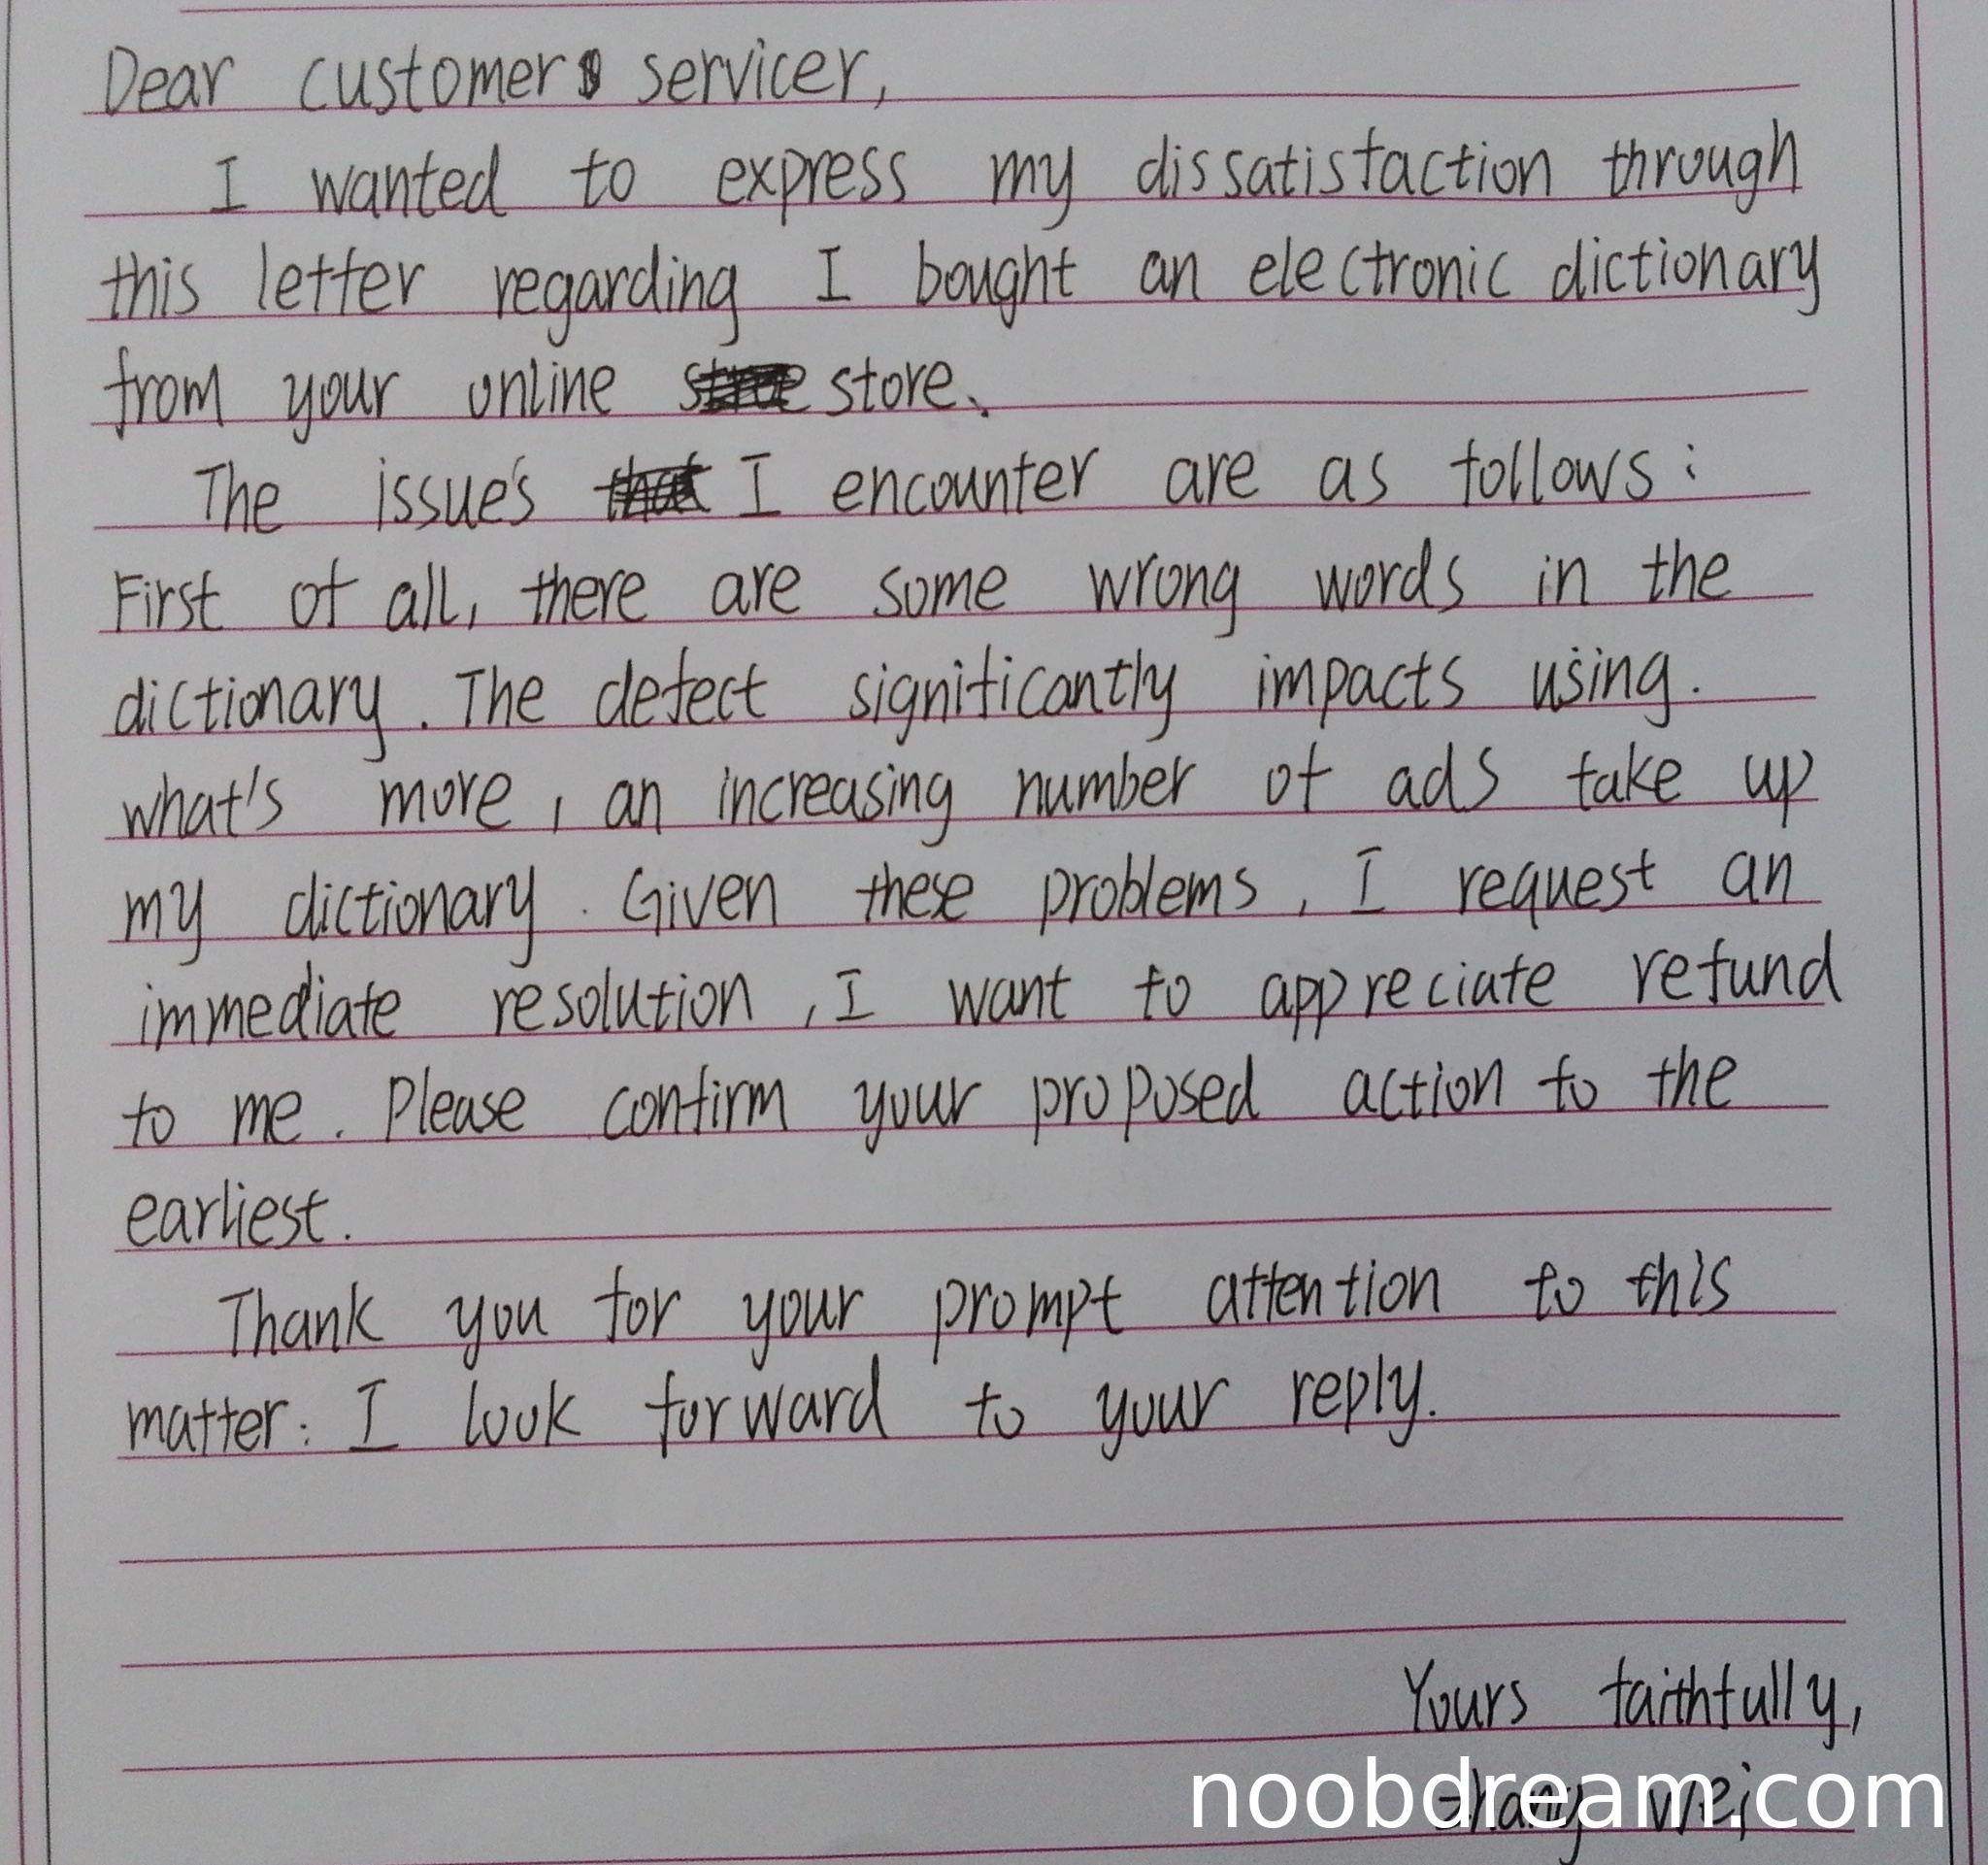 Dear customer servicer,
I wanted to express my dissatisfaction through
this letter regarding I bought an electronic dictionary
from your online store.
The issue's I encounter are as follows:
First of all, there are some wrong words in the
dictionary. The defect significantly impacts using.
what's more, an increasing number of ads take up
my dictionary. Given these problems, I request an
immediate resolution, I want to appreciate refund
to me. Please confirm your proposed action to the
earliest.
Thank you for your prompt attention to this
matter. I look forward to your reply.
Yours faithfully,
zhang wei
noobdream.com